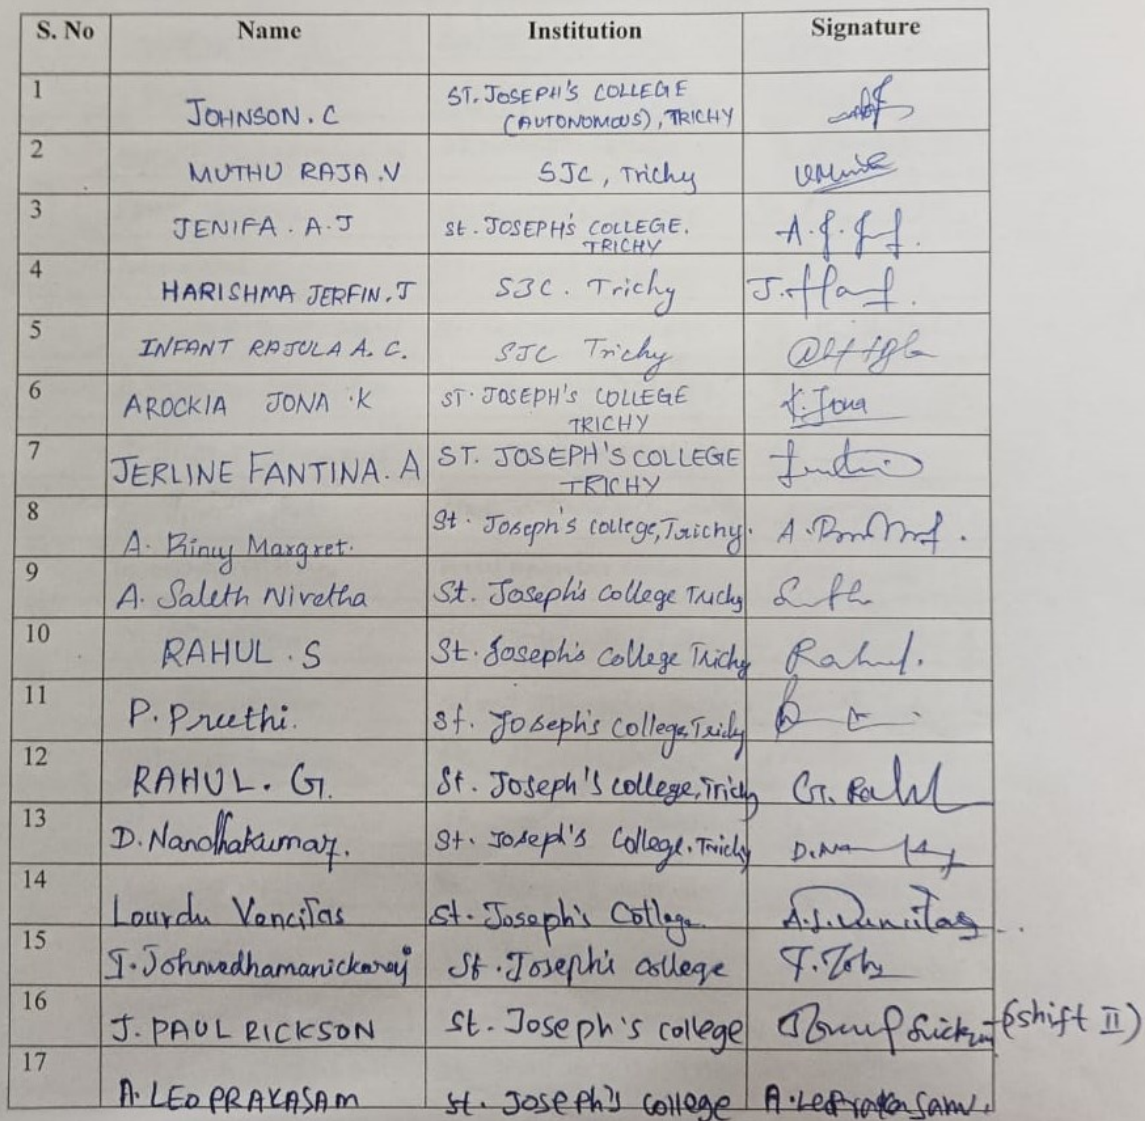 S. No Name Institution Signature
1 JOHNSON. C ST. JOSEPH'S COLLEGE
(AUTONOMOUS), TRICHY
2 MUTHU RAJA .V SJC, Trichy
3 JENIFA. A.J St. JOSEPH'S COLLEGE.
TRICHY
4 HARISHMA JERFIN. J SJC. Trichy
5 INFANT RAJULA A. C. SJC Trichy
6 AROCKIA JONA .K ST. JOSEPH'S COLLEGE K. Jona
TRICHY
7 JERLINE FANTINA. A ST. JOSEPH'S COLLEGE
TRICHY
8 A. Rincy Margret. St. Joseph's college, Trichy.
9 A. Saleth Nivetha St. Joseph's College Trichy
10 RAHUL . S St. Joseph's College Trichy Rahul.
11 P. Preethi. St. Joseph's College, Trichy
12 RAHUL. G. St. Joseph's college, Trichy G. Rahul
13 D. Nandhakumar. St. Joseph's College, Trichy
14 Lourdu Vencitas St. Joseph's College
15 St. Joseph's college
16 J. PAUL RICKSON St. Joseph's college (shift II)
17 A. LEO PRAKASAM St. Joseph's College A. Leo Prakasam.